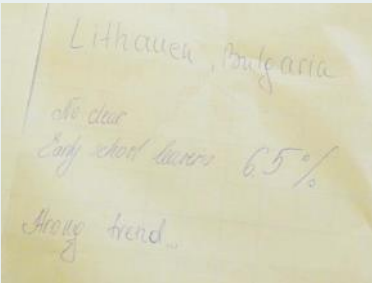 Lithauen, Bulgaria
No clear
Early school leavers 6.5%
Strong trend..